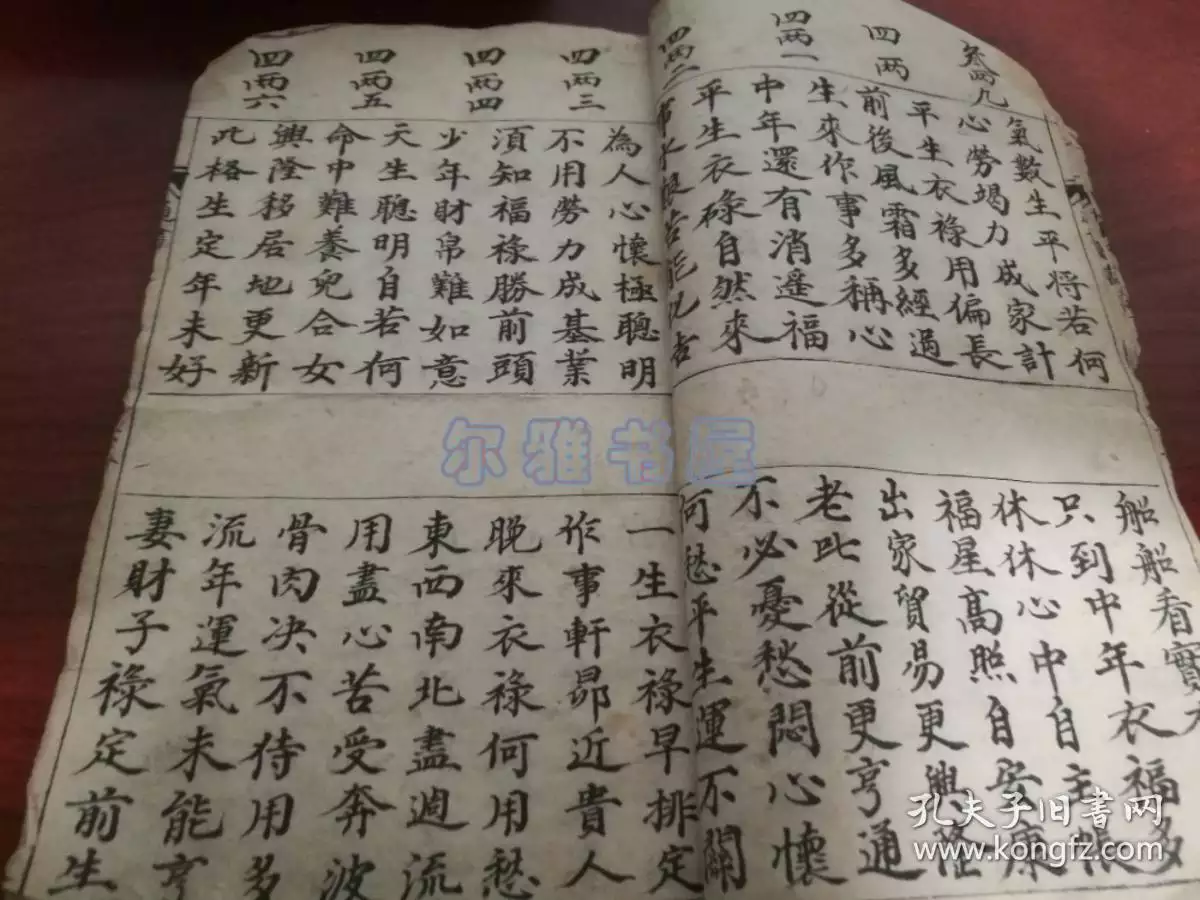 叁兩九
四兩
四兩一
四兩二
氣數生平將若何
心勞竭力成家計
平生衣祿用偏長
前後風霜多經過
生來作事多稱心
中年還有消遙福
平生衣碌自然來
能
船船看寶
只到中年衣福多
休休心中自主帳
福星高照自安康
出家貿易更興隆
老此從前更亨通
不必憂愁悶心懷
何愁平生運不關
四兩三
四兩四
四兩五
四兩六
為人心懷極聰明
不用勞力成基業
須知福祿勝前頭
少年財帛難如意
天生聰明自若何
命中難養兒合女
興隆移居地更新
此格生定年未好
一生衣祿早排定
作事軒昴近貴人
晚來衣祿何用愁
東西南北盡週流
用盡心苦受奔波
骨肉决不待用多
流年運氣未能亨
妻財子祿定前生
尔雅书屋
孔夫子旧书网
www.kongfz.com